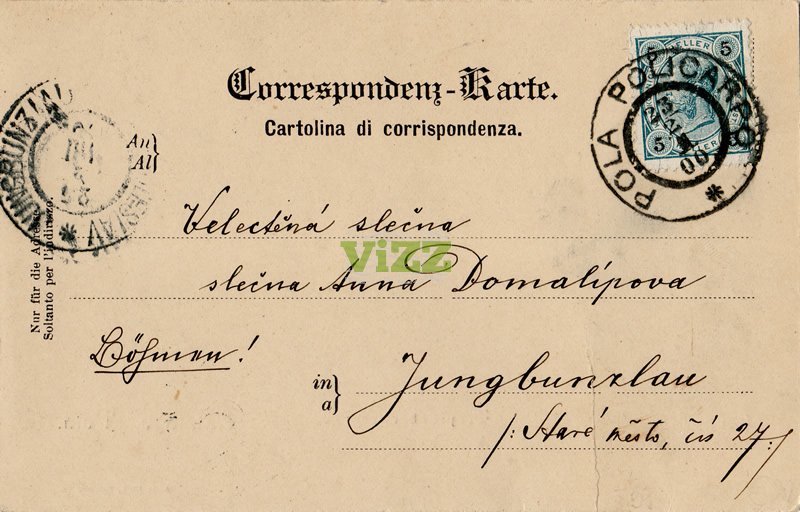 Correspondenz-Karte.
Cartolina di corrispondenza.
5 HELLER 5
5
POLA POLICARPO
23 2 00
JUNGBUNZLAU
An
Al
Velectěná slečna
ViZZ
slečna Anna Domalípova
Nur für die Adresse
Soltanto per l'indirizzo.
Böhmen!
in
a
Jungbunzlau
/: Staré město, čís 27 :/